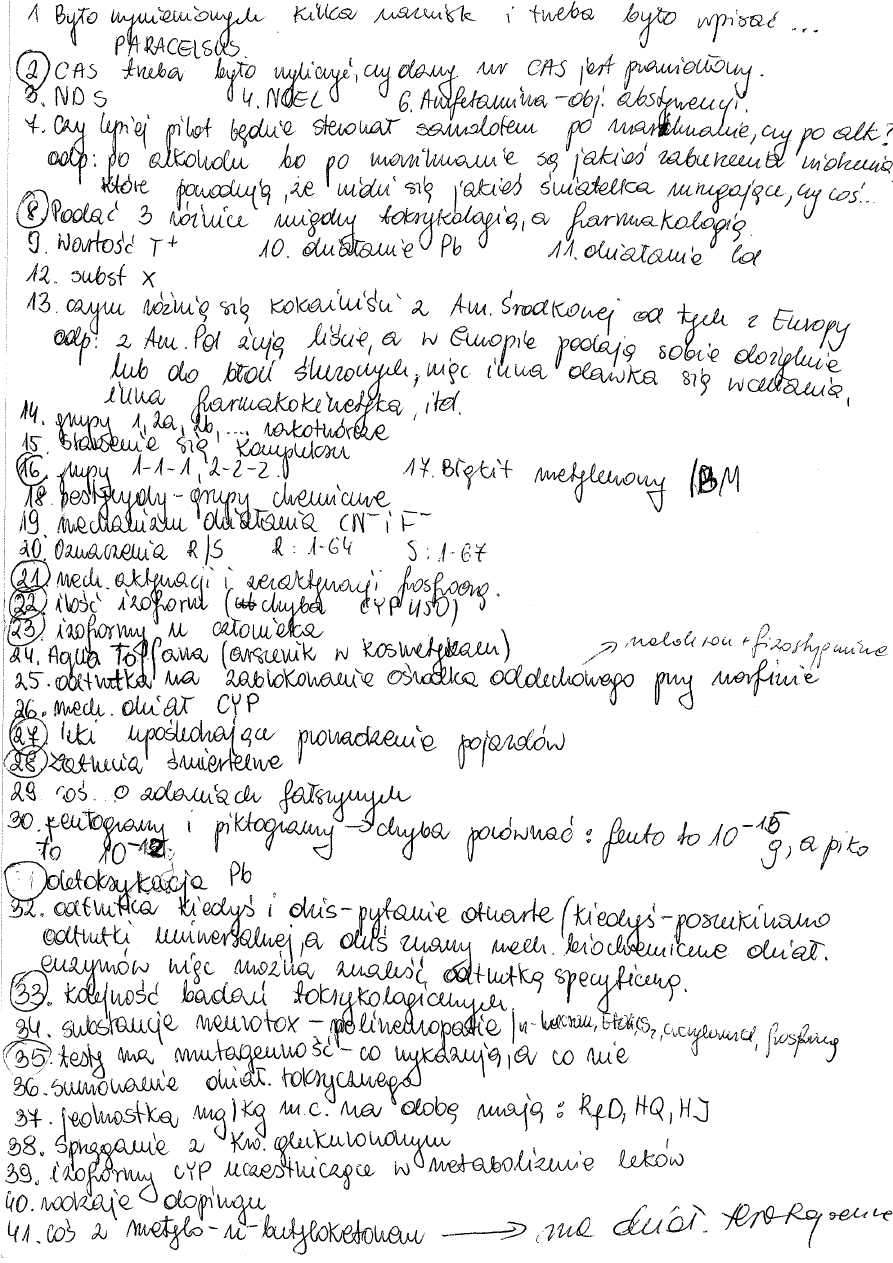 1 Było wymienionych kilka nazwisk i trzeba było wpisać ...
PARACELSUS.
2 CAS trzeba było wyliczyć, czy dany nr CAS jest prawidłowy.
3. NDS 4. NOEL 6. Amfetamina - obj. abstynencji.
7. Czy lepiej pilot będzie sterował samolotem po marihuanie, czy po alk?
odp: po alkoholu bo po marihuanie są jakieś zaburzenia widzenia
które powodują, że widzi się jakieś światełka mrugające, czy coś...
8 Podać 3 różnice między toksykologią, a farmakologią
9. Wartość T+ 10. działanie Pb 11. działanie Cd
12. subst X
13. czym różnią się kokainiści z Am. Środkowej od tych z Europy
odp: z Am. Pd żują liście, a w Europie podają sobie dożylnie
lub do błon śluzowych, więc inna dawka się wchłania,
inna farmakokinetyka, itd.
14. grupy 1, 2a, 2b, ... rakotwórcze
15. Stawienie się kompleksu
16. grupy 1-1-1, 2-2-2. 17. Błękit metylenowy /BM
18. pestycydy - grupy chemiczne
19. mechanizm działania CN⁻ i F⁻
20. Oznaczenia R/S R: 1-64 S: 1-67
21. mech. aktywacji i reaktywacji fosfoorg.
22. ilość izoform (chyba CYP 450)
23. izoformy u człowieka
24. Aqua Toffana (arszenik w kosmetykach)
25. odtrutka na zablokowanie ośrodka oddechowego przy morfinie → nalokson + fizostygmina
26. mech. dział CYP
27. leki upośledzające prowadzenie pojazdów
28. zatrucia śmiertelne
29. coś o zdaniach fałszywych
30. fentogramy i piktogramy → chyba porównać: fento to 10⁻¹⁵ g, a piko
to 10⁻¹².
detoksykacja Pb
32. odtrutka kiedyś i dziś - pytanie otwarte (kiedyś - poszukiwano
odtrutki uniwersalnej, a dziś znamy mech. biochemiczne dział.
enzymów więc można znaleść odtrutkę specyficzną.
33. kolejność badań toksykologicznych
34. substancje neurotox - polineuropatie
35. testy na mutagenność - co wykazują, a co nie
36. sumowanie dział. toksycznego
37. jednostka mg/kg m.c. na dobę mają: RfD, HQ, HJ
38. Sprzęganie z kw. glukuronowym
39. izoformy CYP uczestniczące w metabolizmie leków
40. rodzaje dopingu
41. coś z metylo-n-butyloketonem → ma dział.